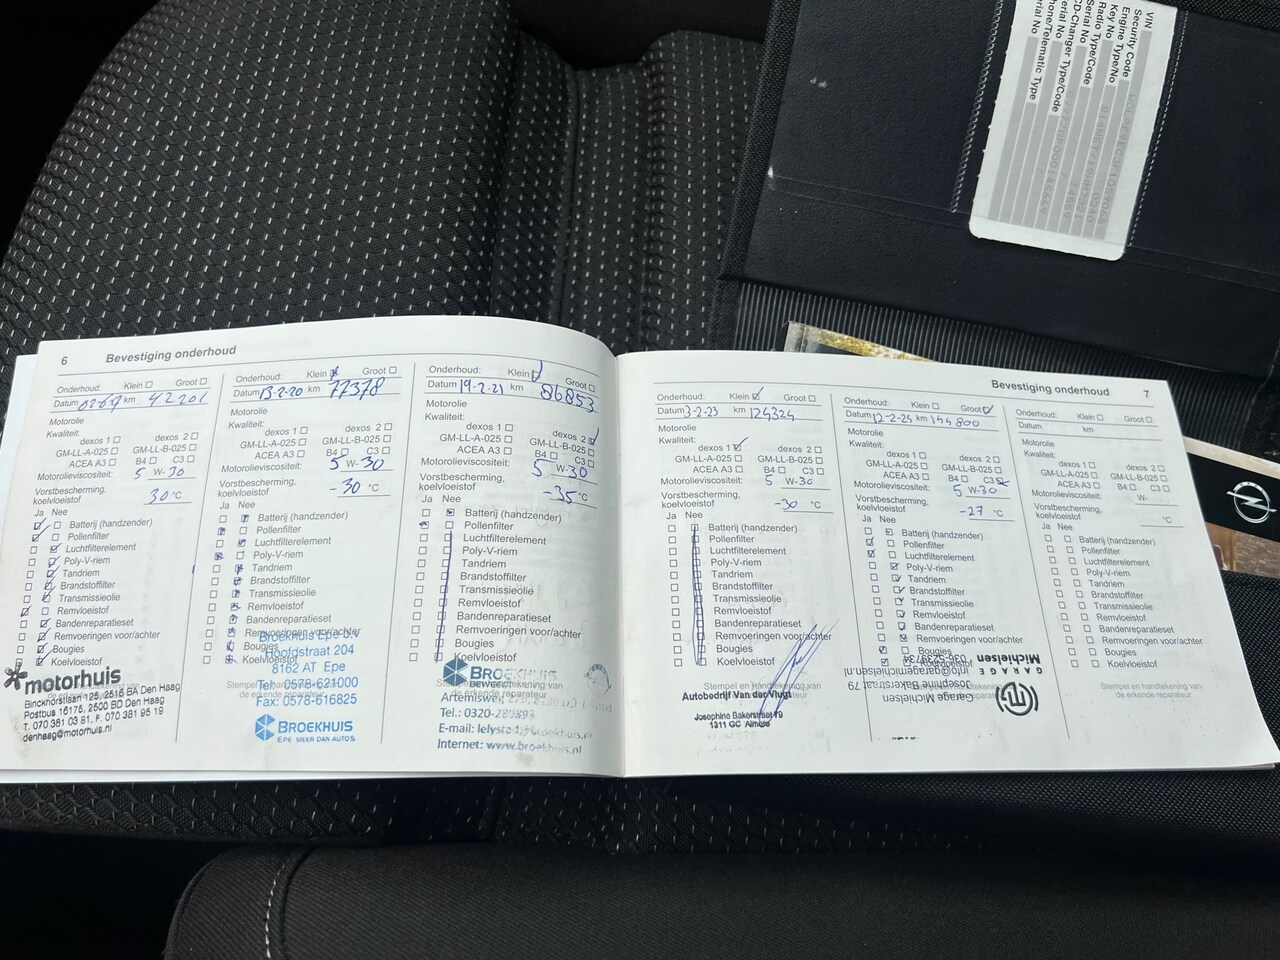 VIN
Security Code
Engine Type/No
Key No
Radio Type/Code
Serial No
CD-Changer Type/Code
Serial No
Phone/Telematic Type
Serial No
6 Bevestiging onderhoud
Onderhoud: Klein Groot
Datum km 42201
Motorolie
Kwaliteit:
dexos 1 dexos 2
GM-LL-A-025 GM-LL-B-025
ACEA A3 B4 C3
Motorolieviscositeit: 5 W-30
Vorstbescherming,
koelvloeistof 30 °C
Ja Nee
Batterij (handzender)
Pollenfilter
Luchtfilterelement
Poly-V-riem
Tandriem
Brandstoffilter
Transmissieolie
Remvloeistof
Bandenreparatieset
Remvoeringen voor/achter
Bougies
Koelvloeistof
motorhuis
Binckhorstlaan 125, 2516 BA Den Haag
Postbus 16175, 2500 BD Den Haag
T. 070 381 03 81, F. 070 381 95 19
denhaag@motorhuis.nl
Onderhoud: Klein Groot
Datum 13-2-20 km 77378
Motorolie
Kwaliteit:
dexos 1 dexos 2
GM-LL-A-025 GM-LL-B-025
ACEA A3 B4 C3
Motorolieviscositeit: 5 W-30
Vorstbescherming,
koelvloeistof -30 °C
Ja Nee
Batterij (handzender)
Pollenfilter
Luchtfilterelement
Poly-V-riem
Tandriem
Brandstoffilter
Transmissieolie
Remvloeistof
Bandenreparatieset
Remvoeringen voor/achter
Bougies
Koelvloeistof
Broekhuis Epe b.v.
Hoofdstraat 204
8162 AT Epe
Tel: 0578-621000
Fax: 0578-616825
BROEKHUIS
EPE MEER DAN AUTO'S
Onderhoud: Klein Groot
Datum 19-2-21 km 86853
Motorolie
Kwaliteit:
dexos 1 dexos 2
GM-LL-A-025 GM-LL-B-025
ACEA A3 B4 C3
Motorolieviscositeit: 5 W-30
Vorstbescherming,
koelvloeistof -35 °C
Ja Nee
Batterij (handzender)
Pollenfilter
Luchtfilterelement
Poly-V-riem
Tandriem
Brandstoffilter
Transmissieolie
Remvloeistof
Bandenreparatieset
Remvoeringen voor/achter
Bougies
Koelvloeistof
BROEKHUIS
Stempel en handtekening van
de erkende reparateur
Artemisweg
Tel.: 0320-289898
E-mail: lelystad@broekhuis.nl
Internet: www.broekhuis.nl
Bevestiging onderhoud 7
Onderhoud: Klein Groot
Datum 3-2-23 km 124324
Motorolie
Kwaliteit:
dexos 1 dexos 2
GM-LL-A-025 GM-LL-B-025
ACEA A3 B4 C3
Motorolieviscositeit: 5 W-30
Vorstbescherming,
koelvloeistof -30 °C
Ja Nee
Batterij (handzender)
Pollenfilter
Luchtfilterelement
Poly-V-riem
Tandriem
Brandstoffilter
Transmissieolie
Remvloeistof
Bandenreparatieset
Remvoeringen voor/achter
Bougies
Koelvloeistof
Stempel en handtekening van
Autobedrijf Van der Vlugt
Josephine Bakerstraat 79
1311 GC Almere
Onderhoud: Klein Groot
Datum 12-2-25 km 144800
Motorolie
Kwaliteit:
dexos 1 dexos 2
GM-LL-A-025 GM-LL-B-025
ACEA A3 B4 C3
Motorolieviscositeit: 5 W-30
Vorstbescherming,
koelvloeistof -27 °C
Ja Nee
Batterij (handzender)
Pollenfilter
Luchtfilterelement
Poly-V-riem
Tandriem
Brandstoffilter
Transmissieolie
Remvloeistof
Bandenreparatieset
Remvoeringen voor/achter
Bougies
Koelvloeistof
GARAGE
Michielsen
Garage Michielsen
Josephine Bakerstraat 79
info@garagemichielsen.nl
036-5239734
Onderhoud: Klein Groot
Datum km
Motorolie
Kwaliteit:
dexos 1 dexos 2
GM-LL-A-025 GM-LL-B-025
ACEA A3 B4 C3
Motorolieviscositeit: W-
Vorstbescherming,
koelvloeistof °C
Ja Nee
Batterij (handzender)
Pollenfilter
Luchtfilterelement
Poly-V-riem
Tandriem
Brandstoffilter
Transmissieolie
Remvloeistof
Bandenreparatieset
Remvoeringen voor/achter
Bougies
Koelvloeistof
Stempel en handtekening van
de erkende reparateur